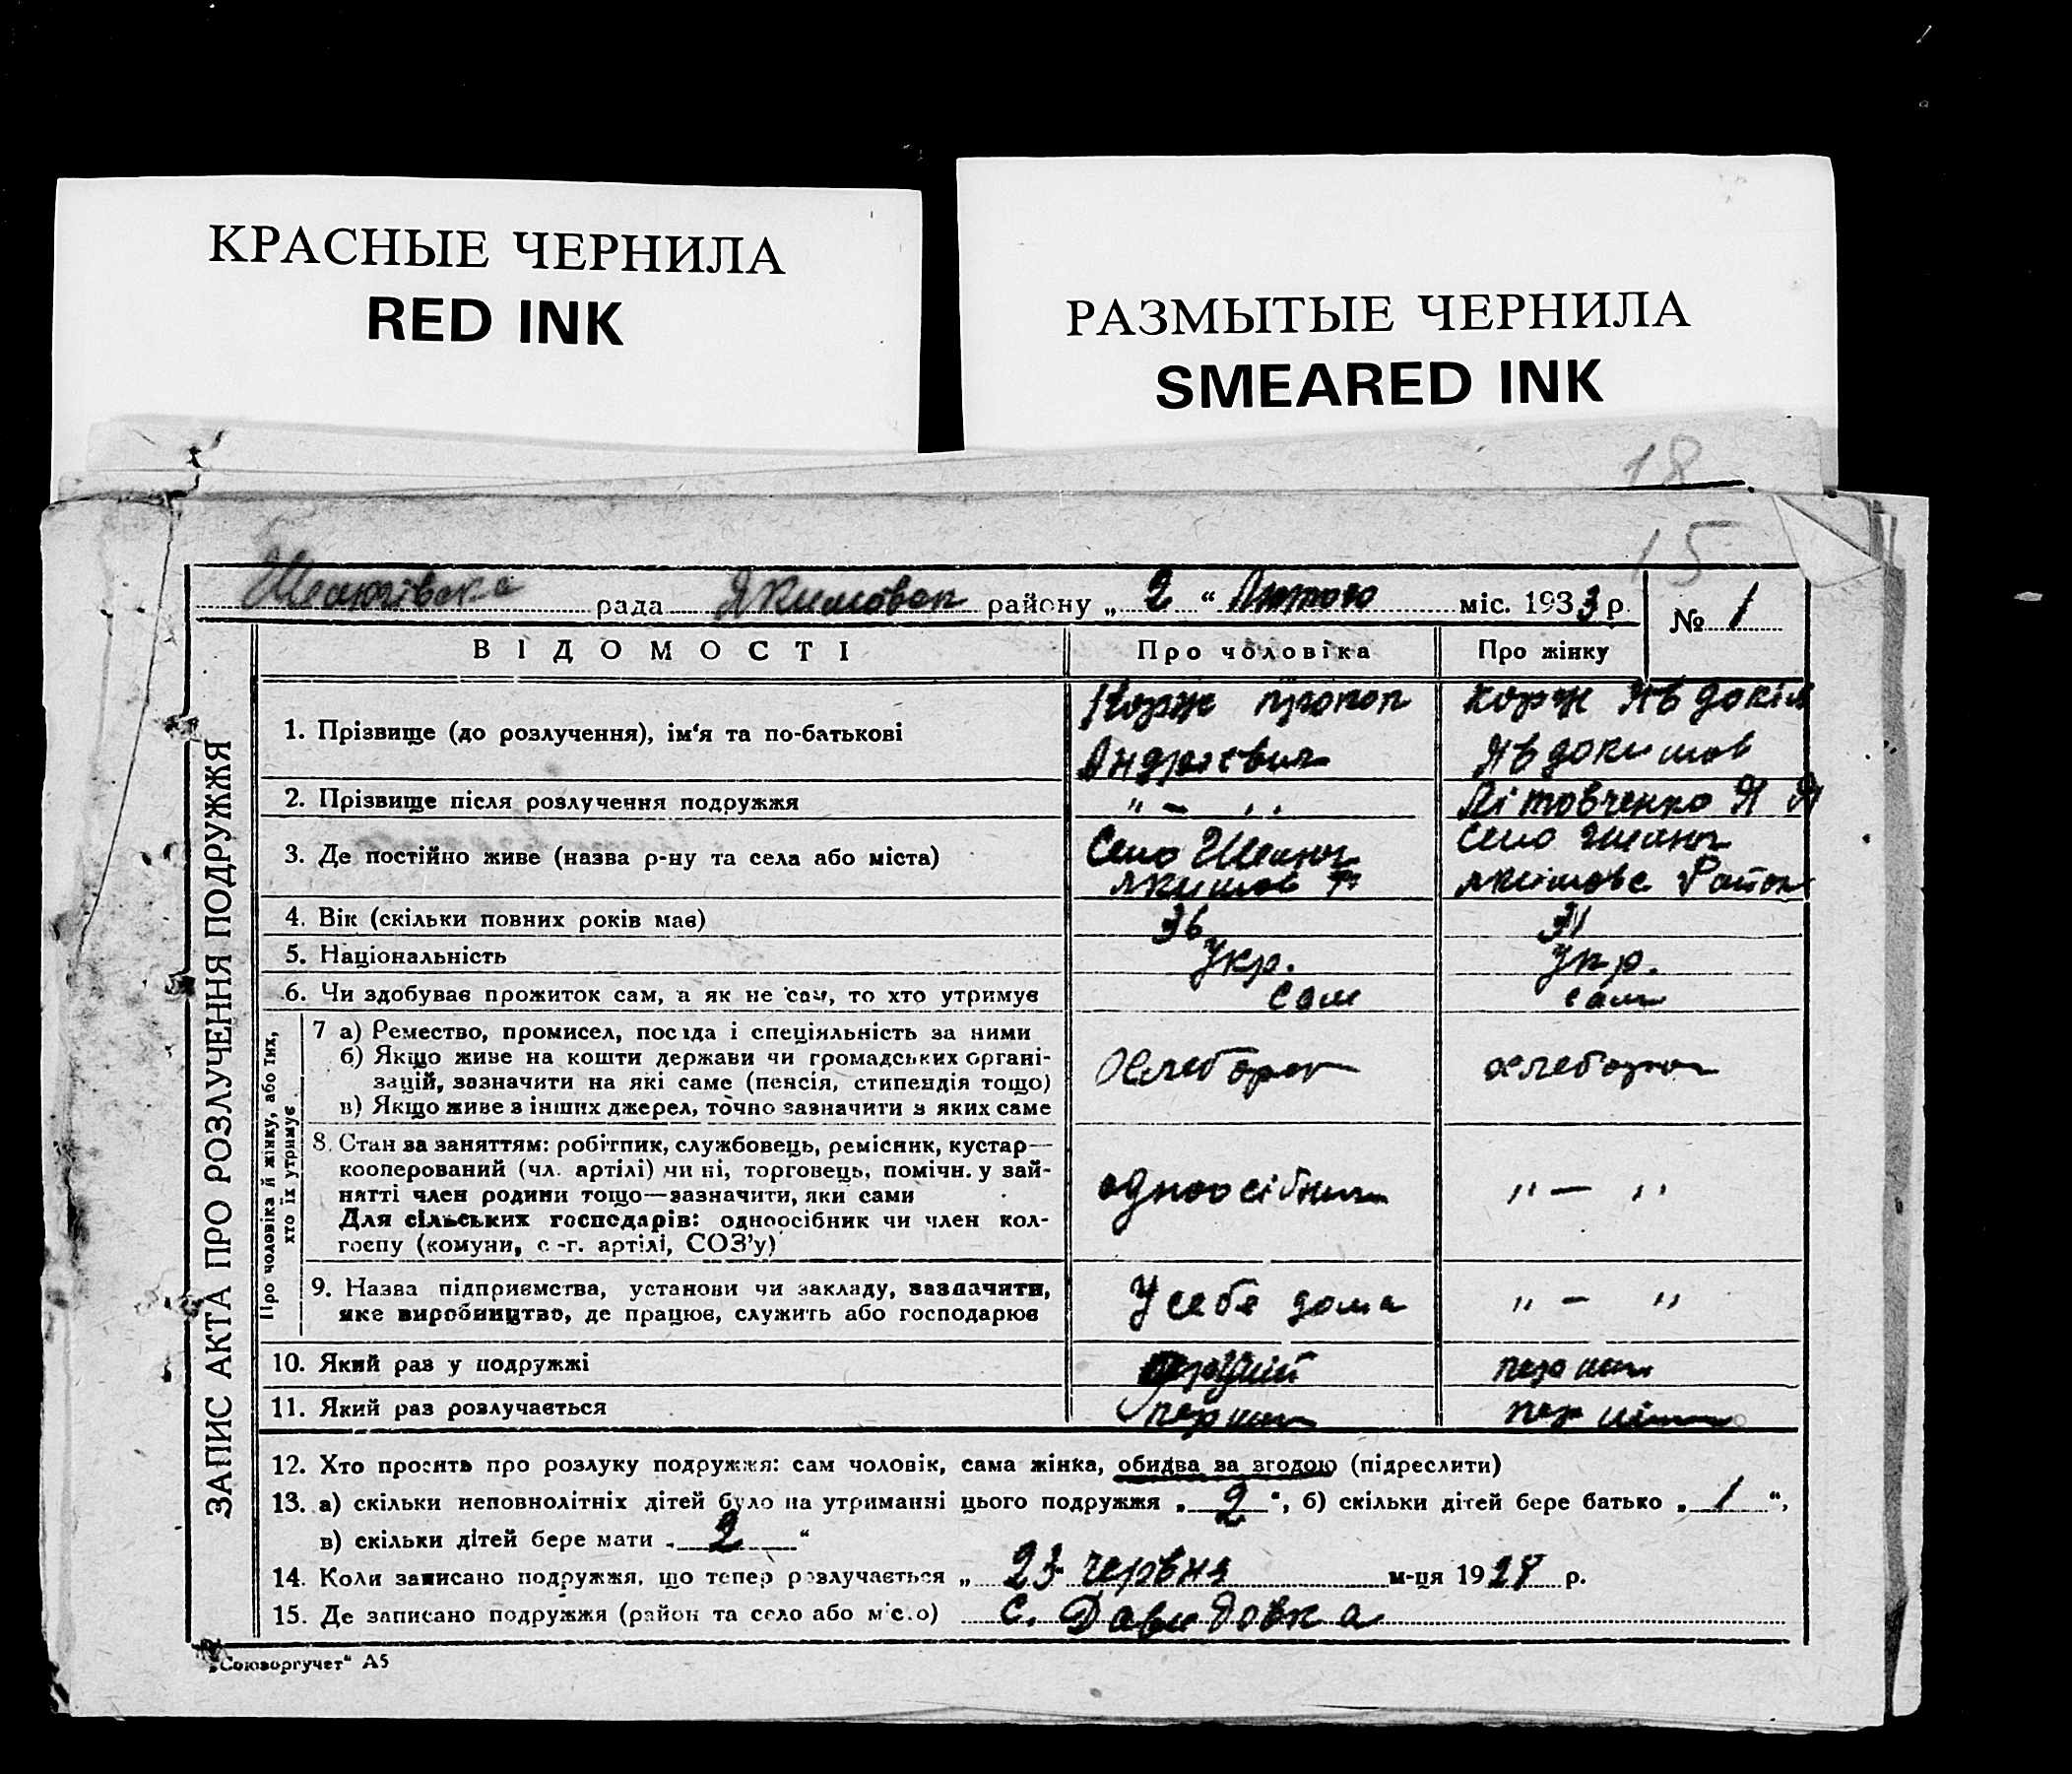 КРАСНЫЕ ЧЕРНИЛА
RED INK
РАЗМЫТЫЕ ЧЕРНИЛА
SMEARED INK
18
15
рада Якимовск району „ 2 “ Лютого міс. 1933 р. № 1
ЗАПИС АКТА ПРО РОЗЛУЧЕННЯ ПОДРУЖЖЯ
ВІДОМОСТІ Про чоловіка Про жінку
1. Прізвище (до розлучення), ім‘я та по-батькові
Корж прокоп
Андреевич
Корж Явдокія
Явдокимов
2. Прізвище після розлучення подружжя „ — „ Літовченко Я Я
3. Де постійно живе (назва р-ну та села або міста)
Село
Якимов Р
Село
Якимовс Район
4. Вік (скільки повних років має) 36 31
5. Національність Укр. Укр.
6. Чи здобуває прожиток сам, а як не сам, то хто утримує сам сам
Про чоловіка й жінку, або тих,
хто їх утримує
7 а) Ремество, промисел, посада і спеціяльність за ними
б) Якщо живе на кошти держави чи громадських органі-
зацій, зазначити на які саме (пенсія, стипендія тощо)
в) Якщо живе з інших джерел, точно зазначити з яких саме
Хлебороб хлебороб
8. Стан за заняттям: робітник, службовець, ремісник, кустар—
кооперований (чл. артілі) чи ні, торговець, помічн. у зай-
нятті член родини тощо—зазначити, яки сами
Для сільських господарів: одноосібник чи член кол-
госпу (комуни, с.-г. артілі, СОЗ’у)
одноосібник „ — „
9. Назва підприємства, установи чи закладу, зазначити,
яке виробництво, де працює, служить або господарює
У себе дома „ — „
10. Який раз у подружжі перший перший
11. Який раз розлучається перший перший
12. Хто просить про розлуку подружжя: сам чоловік, сама жінка, обидва за згодою (підреслити)
13. а) скільки неповнолітніх дітей було на утриманні цього подружжя „ 2 “, б) скільки дітей бере батько „ 1 “,
в) скільки дітей бере мати „ 2 “
14. Коли записано подружжя, що тепер розлучається „ 23 червня м-ця 1928 р.
15. Де записано подружжя (район та село або місто) с. Давидовка
„Союзоргучет“ А5